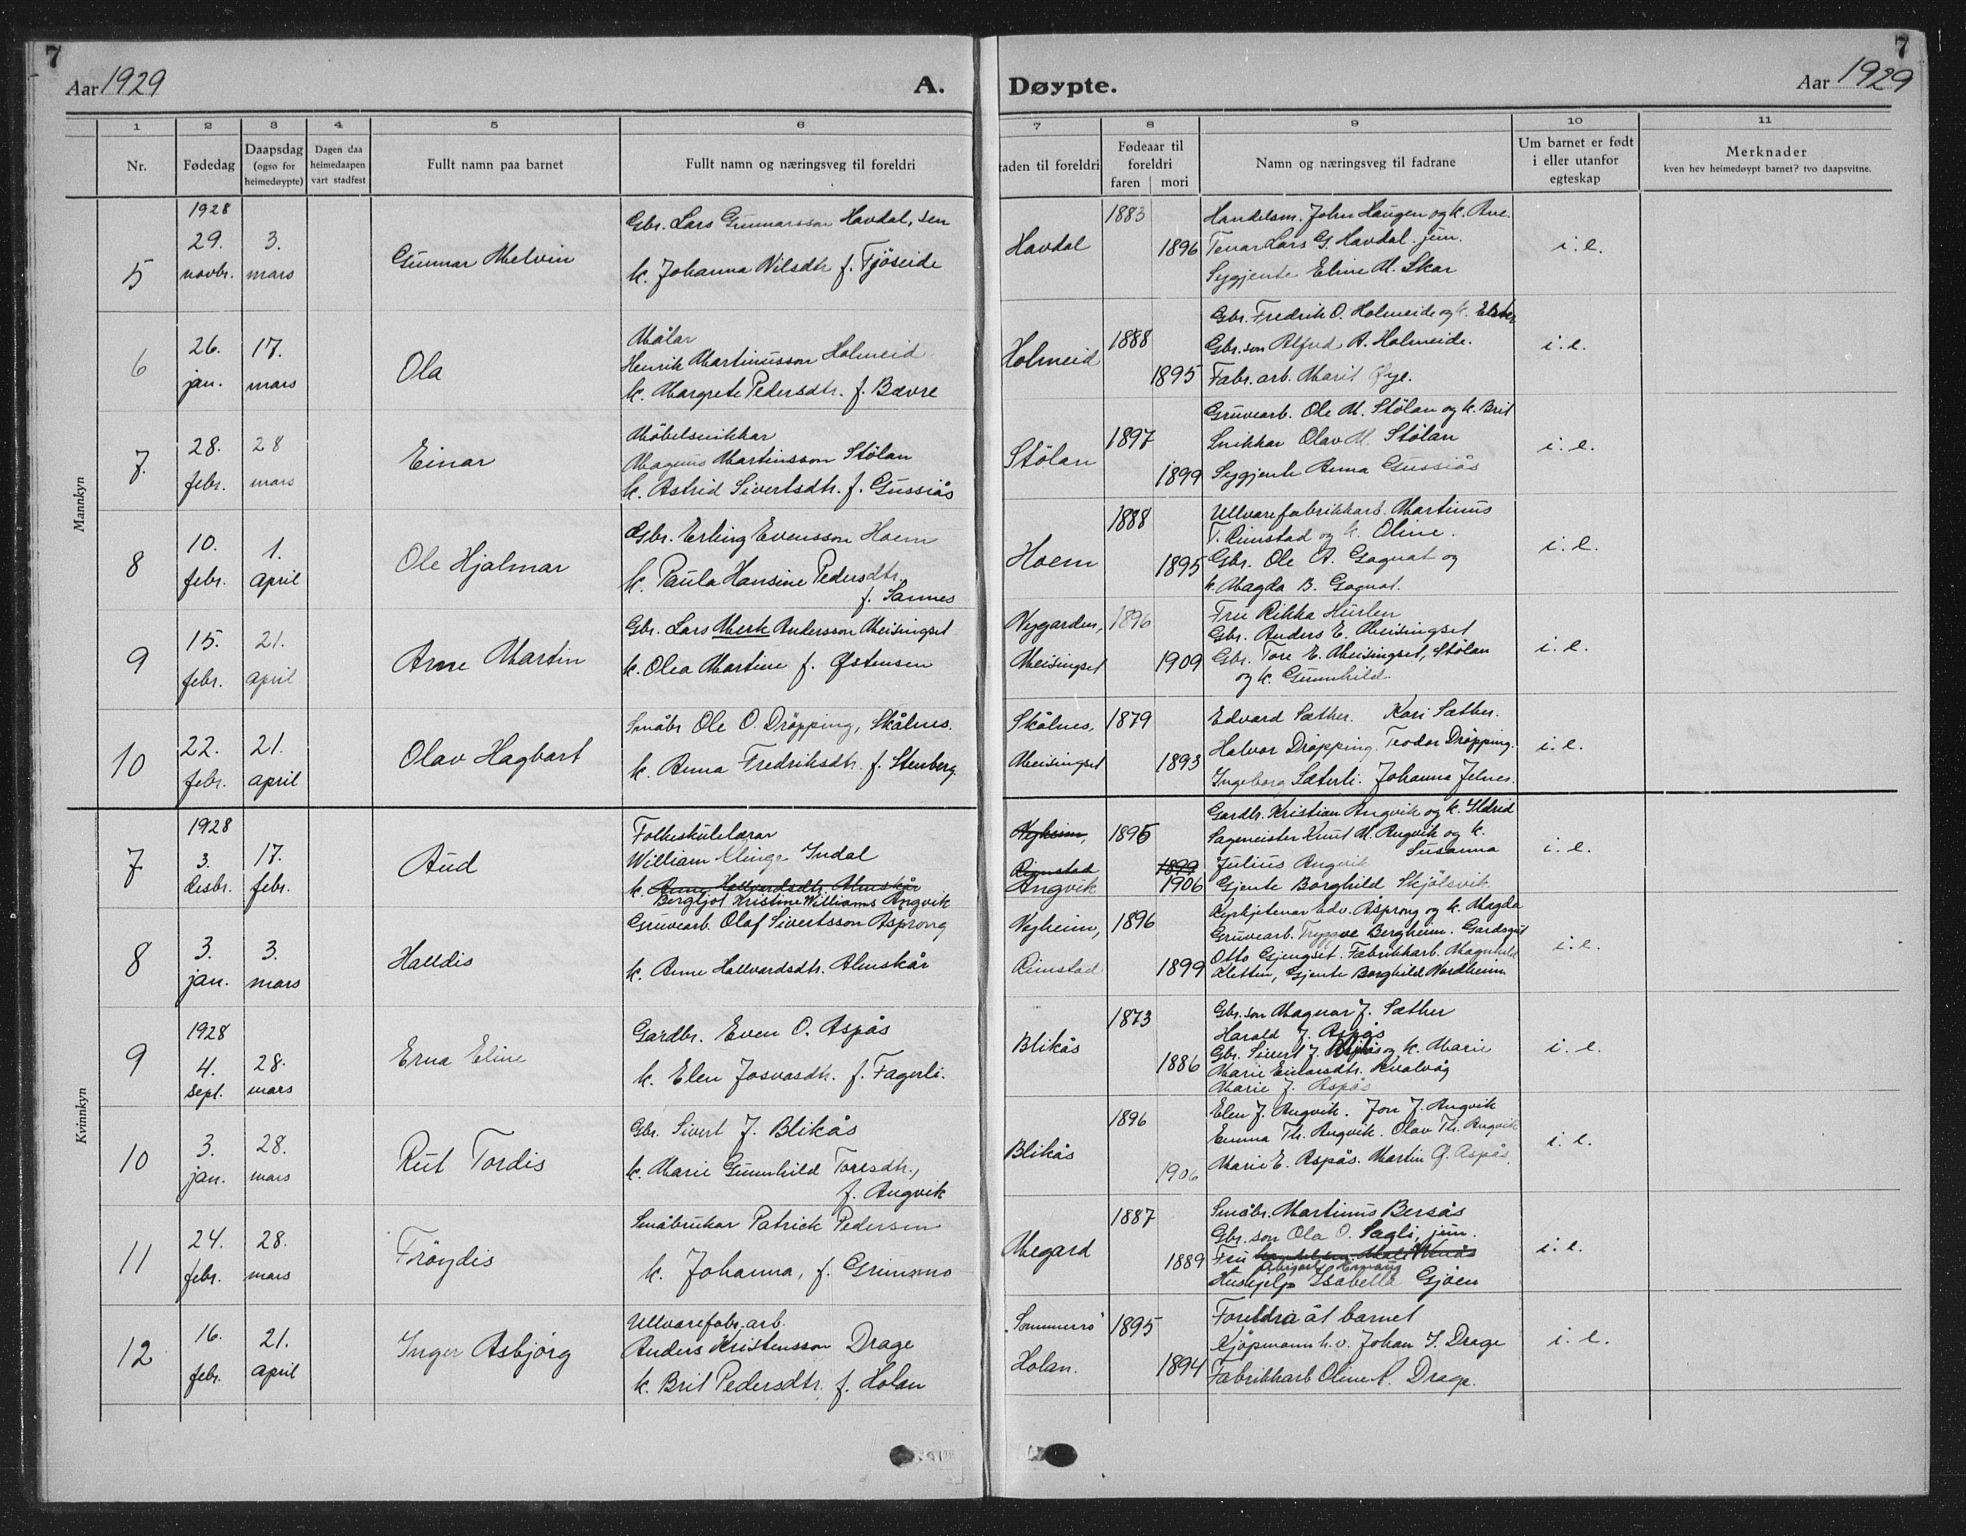 7
Aar 1929
A.
Døypte.
7
Aar 1929
1 2 3 4 5 6 7 8 9 10 11
Nr.
Fødedag
Daapsdag
(ogso for
heimedøypte)
Dagen daa
heimedaapen
vart stadfest
Fullt namn paa barnet
Fullt namn og næringsveg til foreldri
taden til foreldri
Fødeaar til
foreldri
faren mori
Namn og næringsveg til fadrane
Um barnet er født
i eller utanfor
egteskap
Merknader
kven hev heimedøypt barnet? tvo daapsvitne.
Mannkyn
5
1928
29.
novbr.
3.
mars
Gunnar Melvin
Gbr. Lars Gunnarsson Havdal, sen
k. Johanna Nilsdtr f. Fjöseide
Havdal
1883
1896
Handelsm. John Haugen og k. Ane.
Tenar Lars G. Havdal. jun.
Syggjente Eline M. Skar
i. e.
6
26.
jan.
17.
mars
Ola
Målar
Henrik Martinusson Holmeid
k. Margrete Pedersdtr. f. Bævre
Holmeid
1888
1895
Gbr. Fredrik O. Holmeide og k.
Gbr. son Alfred A. Holmeide.
Fabr. arb. Marit Øye.
i. e.
7.
28.
febr.
28
mars
Einar
Möbelsnikkar
Magnus Martinsson Stölan
k. Astrid Sivertsdtr. f. Gussiås
Stölan
1897
1899
Gruvearb. Ole M. Stölan og k. Brit
Snikkar Olav M. Stölan
Syggjente Anna Gussiås
i. e.
8
10.
febr.
1.
april
Ole Hjalmar
Gbr. Erling Evensson Hoem
k. Paula Hansine Pedersdtr.
f. Sannes
Hoem
1888
1895
Ullvarefabrikkarb. Martinus
T. Rimstad og k. Oline.
Gbr. Ole A. Gagnat og
k. Magda B. Gagnat.
i. e.
9
15.
febr.
21.
april
Arne Martin
Gbr. Lars Merk Andersson Meisingset
k. Olea Martine f. Østensen
Nygarden,
Meisingset
1896
1909
Fru Rikka Hurlen
Gbr. Anders E. Meisingset
Gbr. Tore E. Meisingset, Stölan
og k. Gunnhild.
i. e.
10
22.
febr.
21.
april
Olav Hagbart
Småbr Ole O. Dröpping, Skålnes.
k. Anna Fredriksdtr. f. Stenberg
Skålnes,
Meisingset
1879
1893
Edvard Sæther. Kari Sæther.
Halvor Dröpping. Teodor Dröpping.
Ingeborg Sæterli. Johanna Jelnes.
i. e.
Kvinnkyn
7
1928
3.
desbr.
17.
febr.
Aud
Folkeskulelærar
William Klinge Indal
k. Anne Hallvardsdtr. Almskår
Bergljot Kristine Williams Angvik
Nyheim,
Rimstad
Angvik
1895
1899
1906
Gardbr. Kristian Angvik og k. Ildrid
Sagmeister Knut M. Angvik og k.
Susanna
Julius Angvik
Gjente Borghild Skjölsvik
i. e.
8
3.
jan.
3.
mars
Halldis
Gruvearb. Olaf Sivertsson Asprong
k. Anne Hallvardsdtr. Almskår
Nyheim,
Rimstad
1896
1899
Edv. Asprong og k. Magda
Gruvearb. Tryggve Bergheim.
Otto Gjengset. Fabrikkarb. Magnhild
Kletten, Gjente Borghild Nordheim
i. e.
9
1928
4.
sept.
28.
mars
Erna Eline
Gardbr. Even O. Aspås
k. Elen Josvasdtr. f. Fagerli.
Blikås
1873
1886
Gbr. son Magnar J. Sæther
Harald J. Aspås
Gbr. Sivert J. og k. Marie
Marie Einarsdtr. Kvalvåg
Marie J. Aspås
i. e.
10
3.
jan.
28.
mars
Rut Tordis
Gbr. Sivert J. Blikås
k. Marie Gunnhild Toresdtr.,
f. Angvik
Blikås
1896
1906
Elen J. Angvik. Jon J. Angvik
Emma Th. Angvik. Olav Th. Angvik
Marie E. Aspås. Martin G. Aspås.
i. e.
11
24.
febr.
28.
mars
Fröydis
Småbrukar Patrick Pedersen
k. Johanna, f. Grimsmo
Megard
1887
1889
Småbr. Martinus Bersås
Gbr. son Ola O. Sagli, jun.
Fru
Hushjelp Isabella Gjöen
i. e.
12
16.
febr.
21.
april
Inger Asbjörg
Ullvarefabr. arb.
Anders Kristensson Drage
k. Brit Pedersdtr. f. Holan
"Sommerro"
Holan.
1895
1894
Foreldra åt barnet
Kjöpmann h.v. Johan I. Drage
Fabrikkarb Oline A. Drage.
i. e.